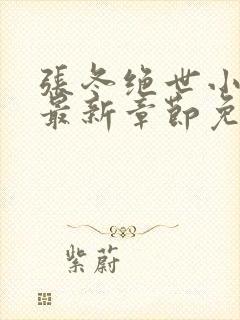 張冬绝世小
最新章節免
紫蔚